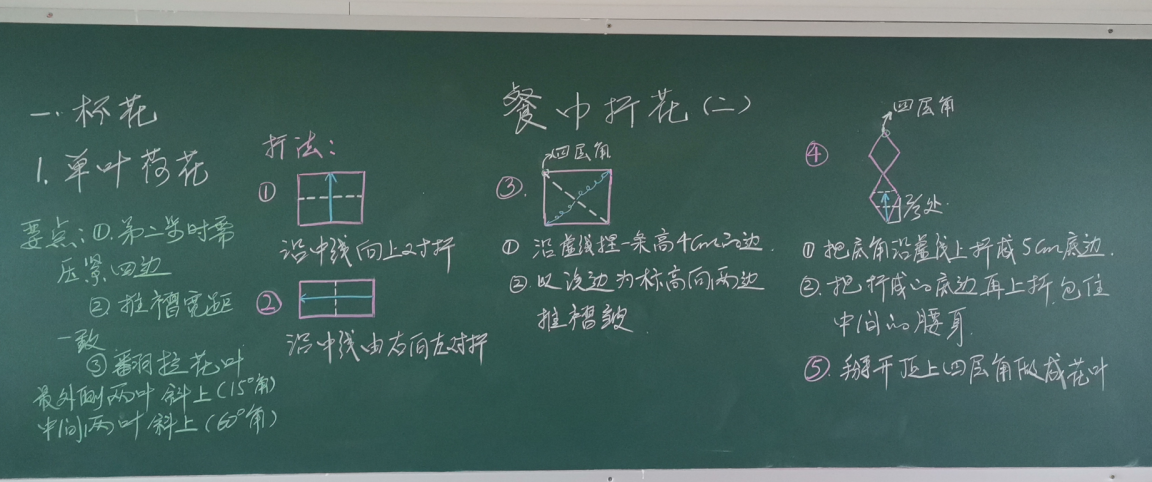 餐巾折花(二)
一.杯花
1.单叶荷花
要点:①.第二步时需
压紧四边
②.推褶宽距
一致
③翻拉花叶
最外侧两叶斜上(15°角)
中间两叶斜上(60°角)
折法:
①
沿中线向上对折
②
沿中线由右向左对折
③.
四层角
①沿虚线捏一条高4cm的边.
②.以该边为标高向两边
推褶皱.
④
四层角
卷处.
①把底角沿虚线上折成5cm底边.
②.把折成的底边再上折包住
中间的腰身.
⑤.掰开顶上四层角做成花叶